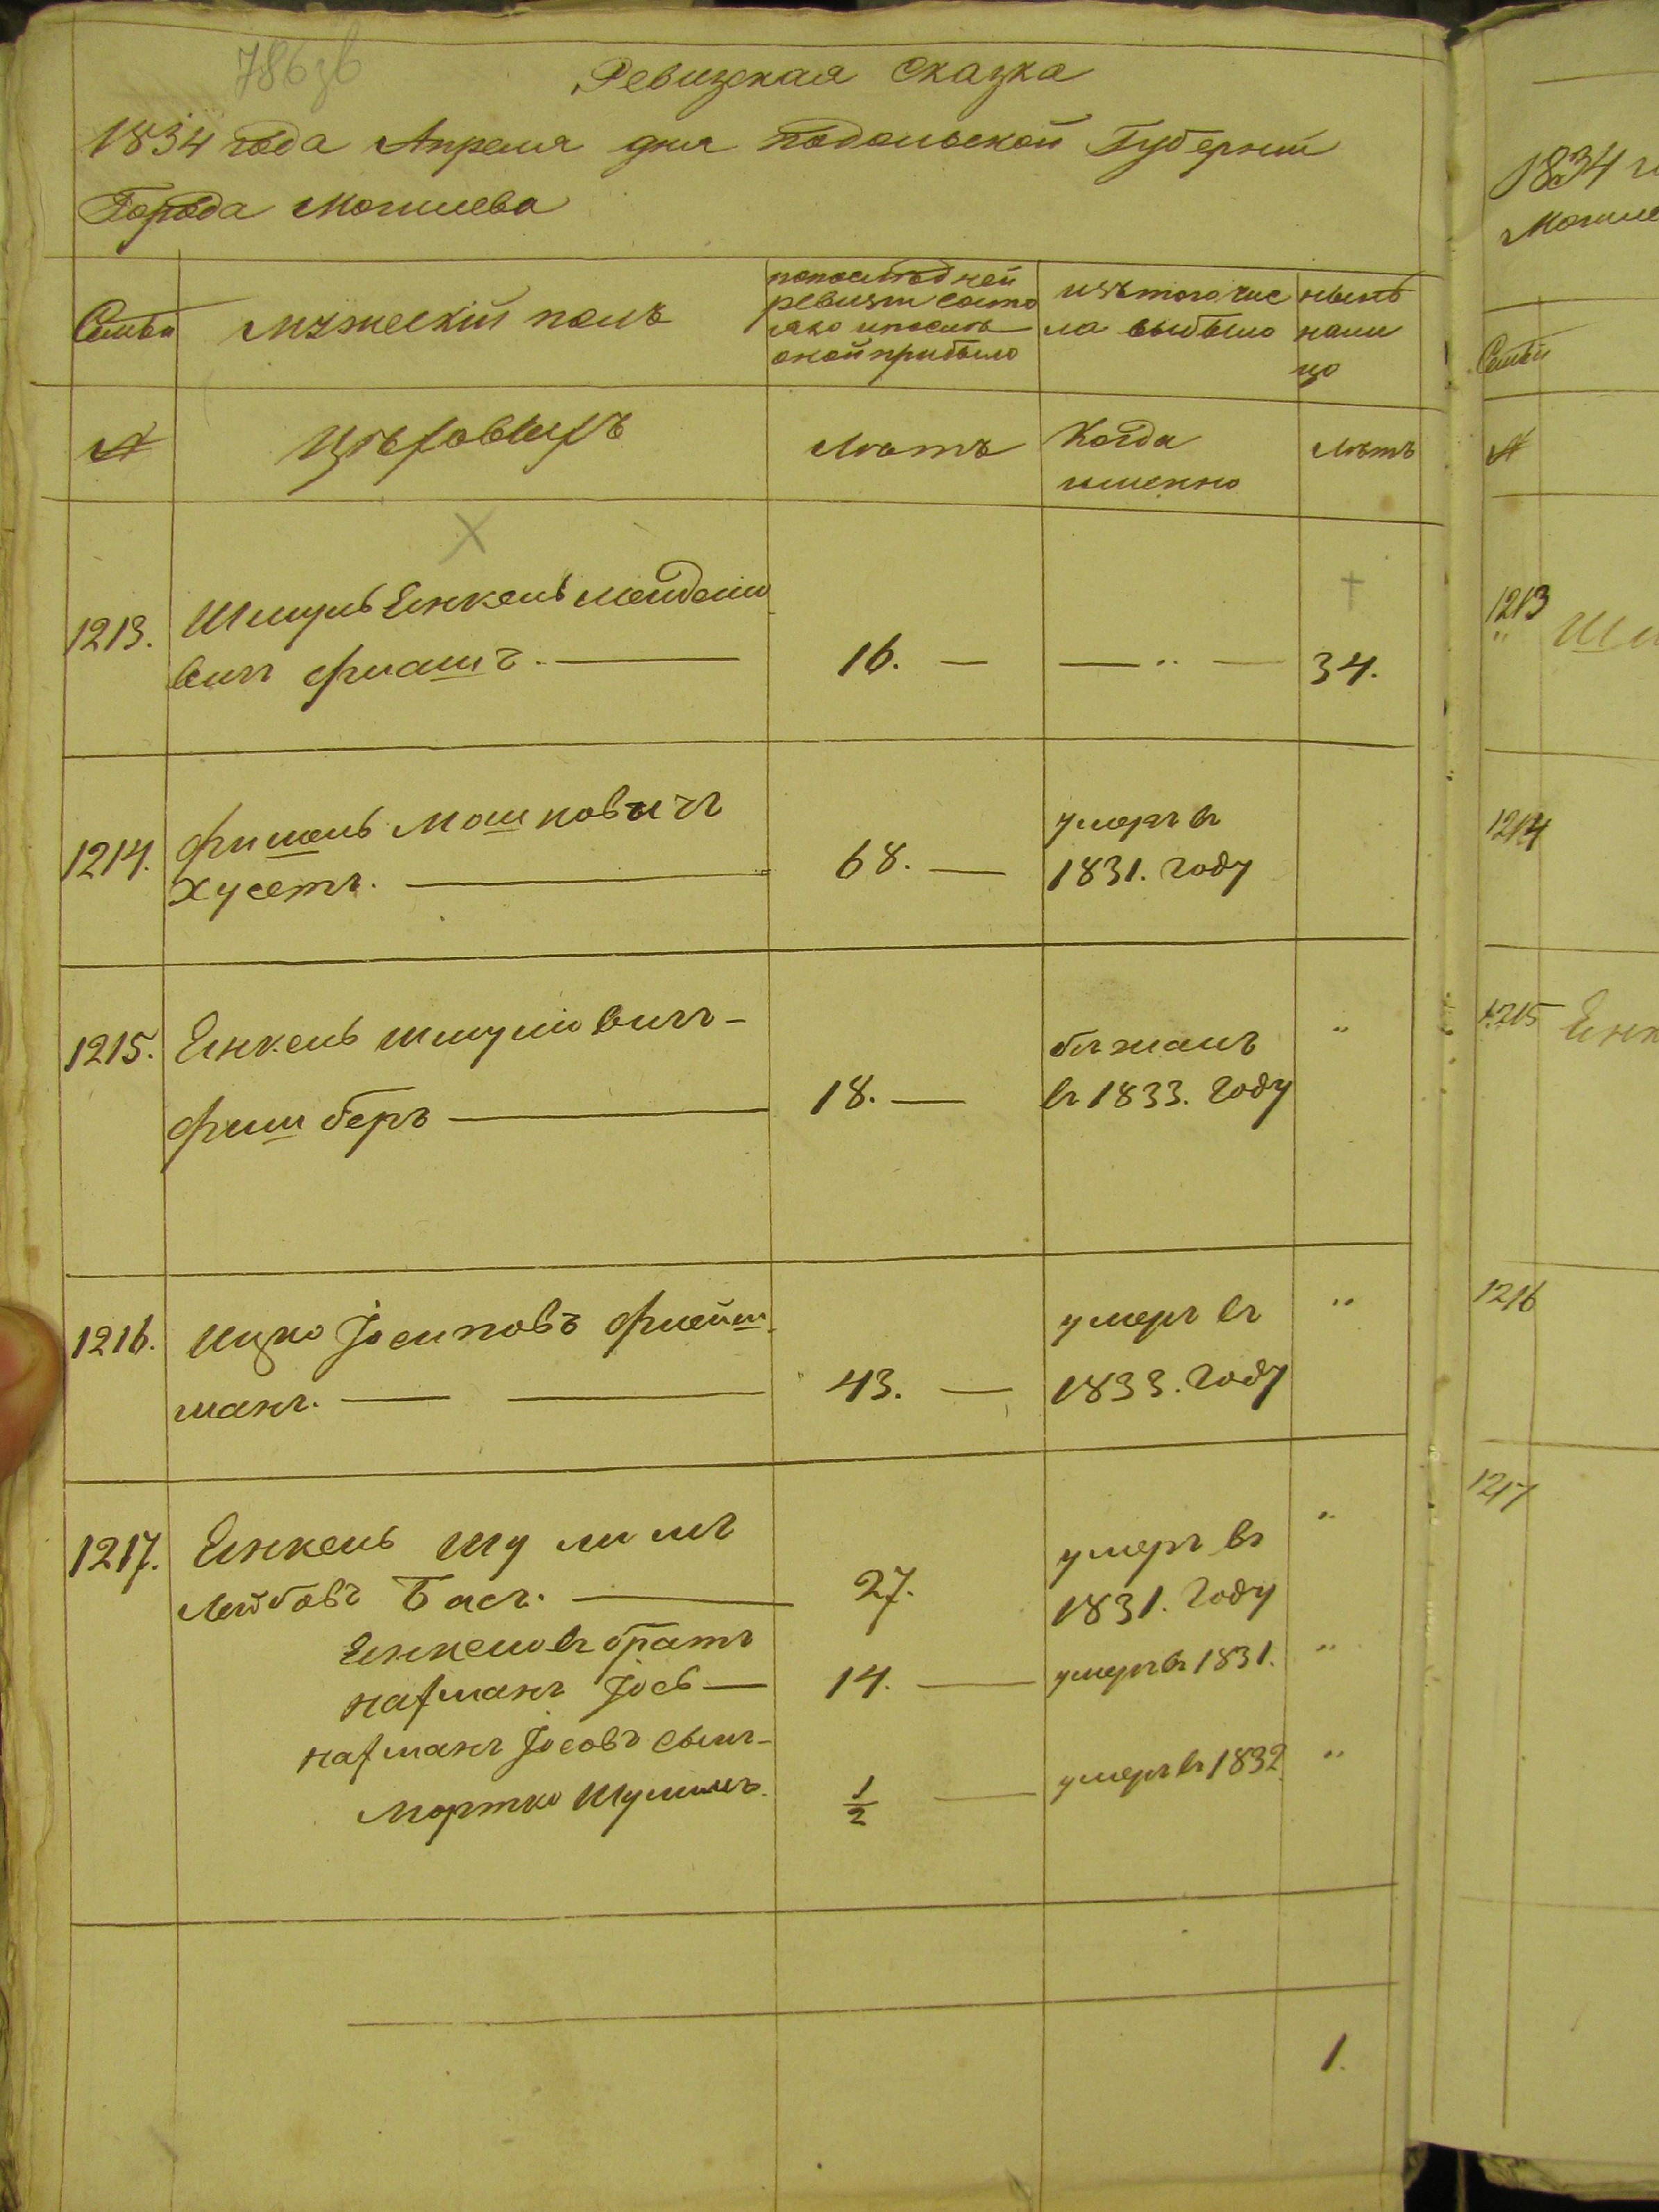 786зв
Ревизская Сказка
1834 года Апреля дня Подольской Губернии
Города Могилева
Семьи
Мужеский полъ
по последней ревизии состояло и после оной прибыло
изъ того числа выбыло
ныне налицо
№
Летъ
Когда именно
Летъ
1213.
Шмуль Еинкель
16. —
— " —
34.
1214.
Фишель Мошковичъ
Хусетъ.
68. —
умеръ въ
1831. году
1215.
Еинкель Шмулiовичъ -
Фишберъ
18. —
бежалъ
въ 1833. году
"
1216.
Ицко Iосиповъ Флейш-
манъ.
43. —
умеръ въ
1833. году
"
1217.
Еинкель Шулимъ
Лейбовъ Басъ.
27.
умеръ въ
1831. году
"
Еинкелiовъ братъ
Нахманъ Iось —
14. —
умеръ въ 1831.
"
Нахманъ Iосовъ сынъ -
Мортко Шулимъ.
1/2 —
умеръ въ 1832.
"
1.
1834
Семьи
№
1213
"
1214
1215
1216
1217